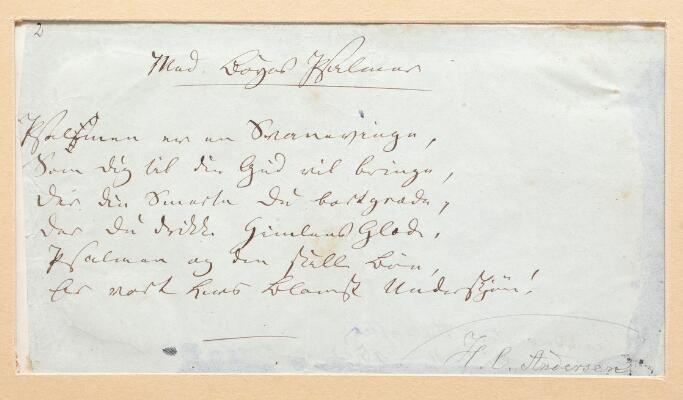 2
Med Boyes Psalmer
Psalmen er en Svanevinge,
Som dig til din Gud vil bringe,
Der din Smerte Du bortgræde,
Der du drikke Himlens Glæde.
Psalmen og den stille Bøn,
Er vort Livs Blomst Underskjøn!
H. C. Andersen